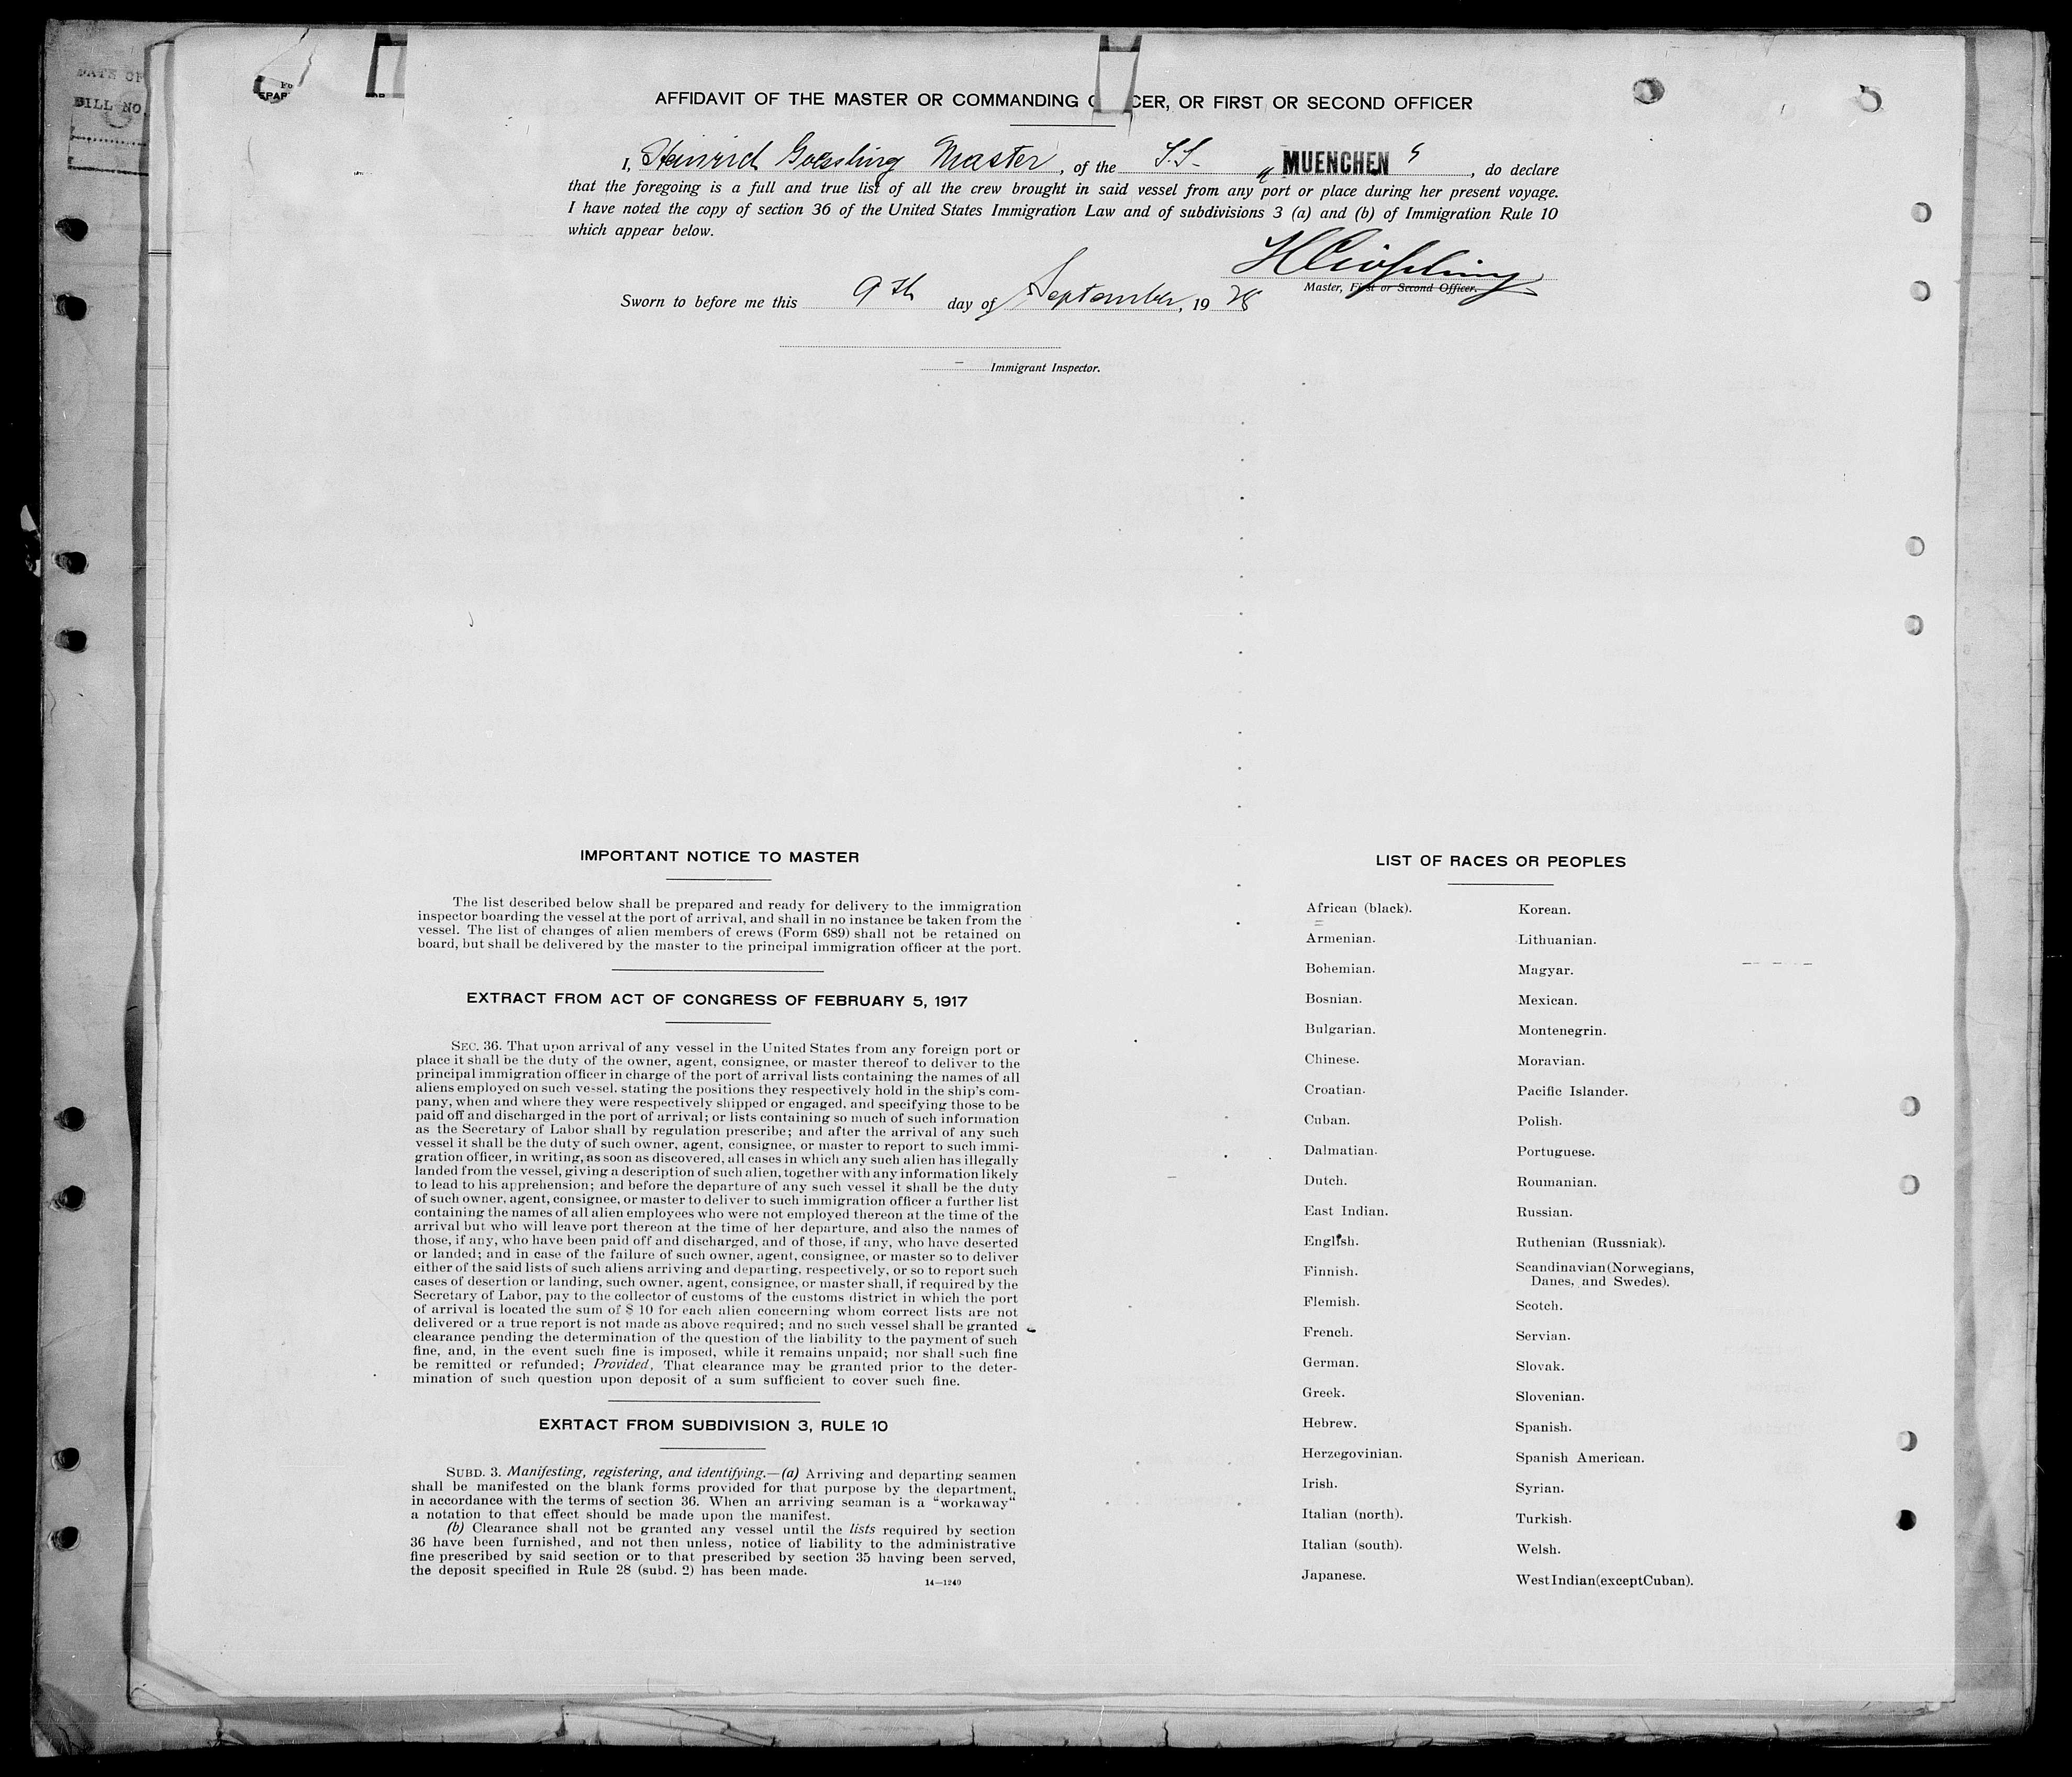 DATE OF
BILL NO.
AFFIDAVIT OF THE MASTER OR COMMANDING O CER, OR FIRST OR SECOND OFFICER
I, Heinrich Goessling Master, of the S.S. „ MUENCHEN “, do declare
that the foregoing is a full and true list of all the crew brought in said vessel from any port or place during her present voyage.
I have noted the copy of section 36 of the United States Immigration Law and of subdivisions 3 (a) and (b) of Immigration Rule 10
which appear below.
HGoessling
Master, First or Second Officer.
Sworn to before me this 9th day of September, 1928
Immigrant Inspector.
IMPORTANT NOTICE TO MASTER
The list described below shall be prepared and ready for delivery to the immigration
inspector boarding the vessel at the port of arrival, and shall in no instance be taken from the
vessel. The list of changes of alien members of crews (Form 689) shall not be retained on
board, but shall be delivered by the master to the principal immigration officer at the port.
EXTRACT FROM ACT OF CONGRESS OF FEBRUARY 5, 1917
SEC. 36. That upon arrival of any vessel in the United States from any foreign port or
place it shall be the duty of the owner, agent, consignee, or master thereof to deliver to the
principal immigration officer in charge of the port of arrival lists containing the names of all
aliens employed on such vessel. stating the positions they respectively hold in the ship's com-
pany, when and where they were respectively shipped or engaged, and specifying those to be
paid off and discharged in the port of arrival; or lists containing so much of such information
as the Secretary of Labor shall by regulation prescribe; and after the arrival of any such
vessel it shall be the duty of such owner, agent, consignee, or master to report to such immi-
gration officer, in writing, as soon as discovered, all cases in which any such alien has illegally
landed from the vessel, giving a description of such alien, together with any information likely
to lead to his apprehension; and before the departure of any such vessel it shall be the duty
of such owner, agent, consignee, or master to deliver to such immigration officer a further list
containing the names of all alien employees who were not employed thereon at the time of the
arrival but who will leave port thereon at the time of her departure, and also the names of
those, if any, who have been paid off and discharged, and of those, if any, who have deserted
or landed; and in case of the failure of such owner, agent, consignee, or master so to deliver
either of the said lists of such aliens arriving and departing, respectively, or so to report such
cases of desertion or landing, such owner, agent, consignee, or master shall, if required by the
Secretary of Labor, pay to the collector of customs of the customs district in which the port
of arrival is located the sum of $ 10 for each alien concerning whom correct lists are not
delivered or a true report is not made as above required; and no such vessel shall be granted
clearance pending the determination of the question of the liability to the payment of such
fine, and, in the event such fine is imposed, while it remains unpaid; nor shall such fine
be remitted or refunded; Provided, That clearance may be granted prior to the deter-
mination of such question upon deposit of a sum sufficient to cover such fine.
EXRTACT FROM SUBDIVISION 3, RULE 10
SUBD. 3. Manifesting, registering, and identifying.—(a) Arriving and departing seamen
shall be manifested on the blank forms provided for that purpose by the department,
in accordance with the terms of section 36. When an arriving seaman is a “workaway“
a notation to that effect should be made upon the manifest.
(b) Clearance shall not be granted any vessel until the lists required by section
36 have been furnished, and not then unless, notice of liability to the administrative
fine prescribed by said section or to that prescribed by section 35 having been served,
the deposit specified in Rule 28 (subd. 2) has been made.
14—1240
LIST OF RACES OR PEOPLES
African (black).
Armenian.
Bohemian.
Bosnian.
Bulgarian.
Chinese.
Croatian.
Cuban.
Dalmatian.
Dutch.
East Indian.
English.
Finnish.
Flemish.
French.
German.
Greek.
Hebrew.
Herzegovinian.
Irish.
Italian (north).
Italian (south).
Japanese.
Korean.
Lithuanian.
Magyar.
Mexican.
Montenegrin.
Moravian.
Pacific Islander.
Polish.
Portuguese.
Roumanian.
Russian.
Ruthenian (Russniak).
Scandinavian (Norwegians,
Danes, and Swedes).
Scotch.
Servian.
Slovak.
Slovenian.
Spanish.
Spanish American.
Syrian.
Turkish.
Welsh.
West Indian (except Cuban).